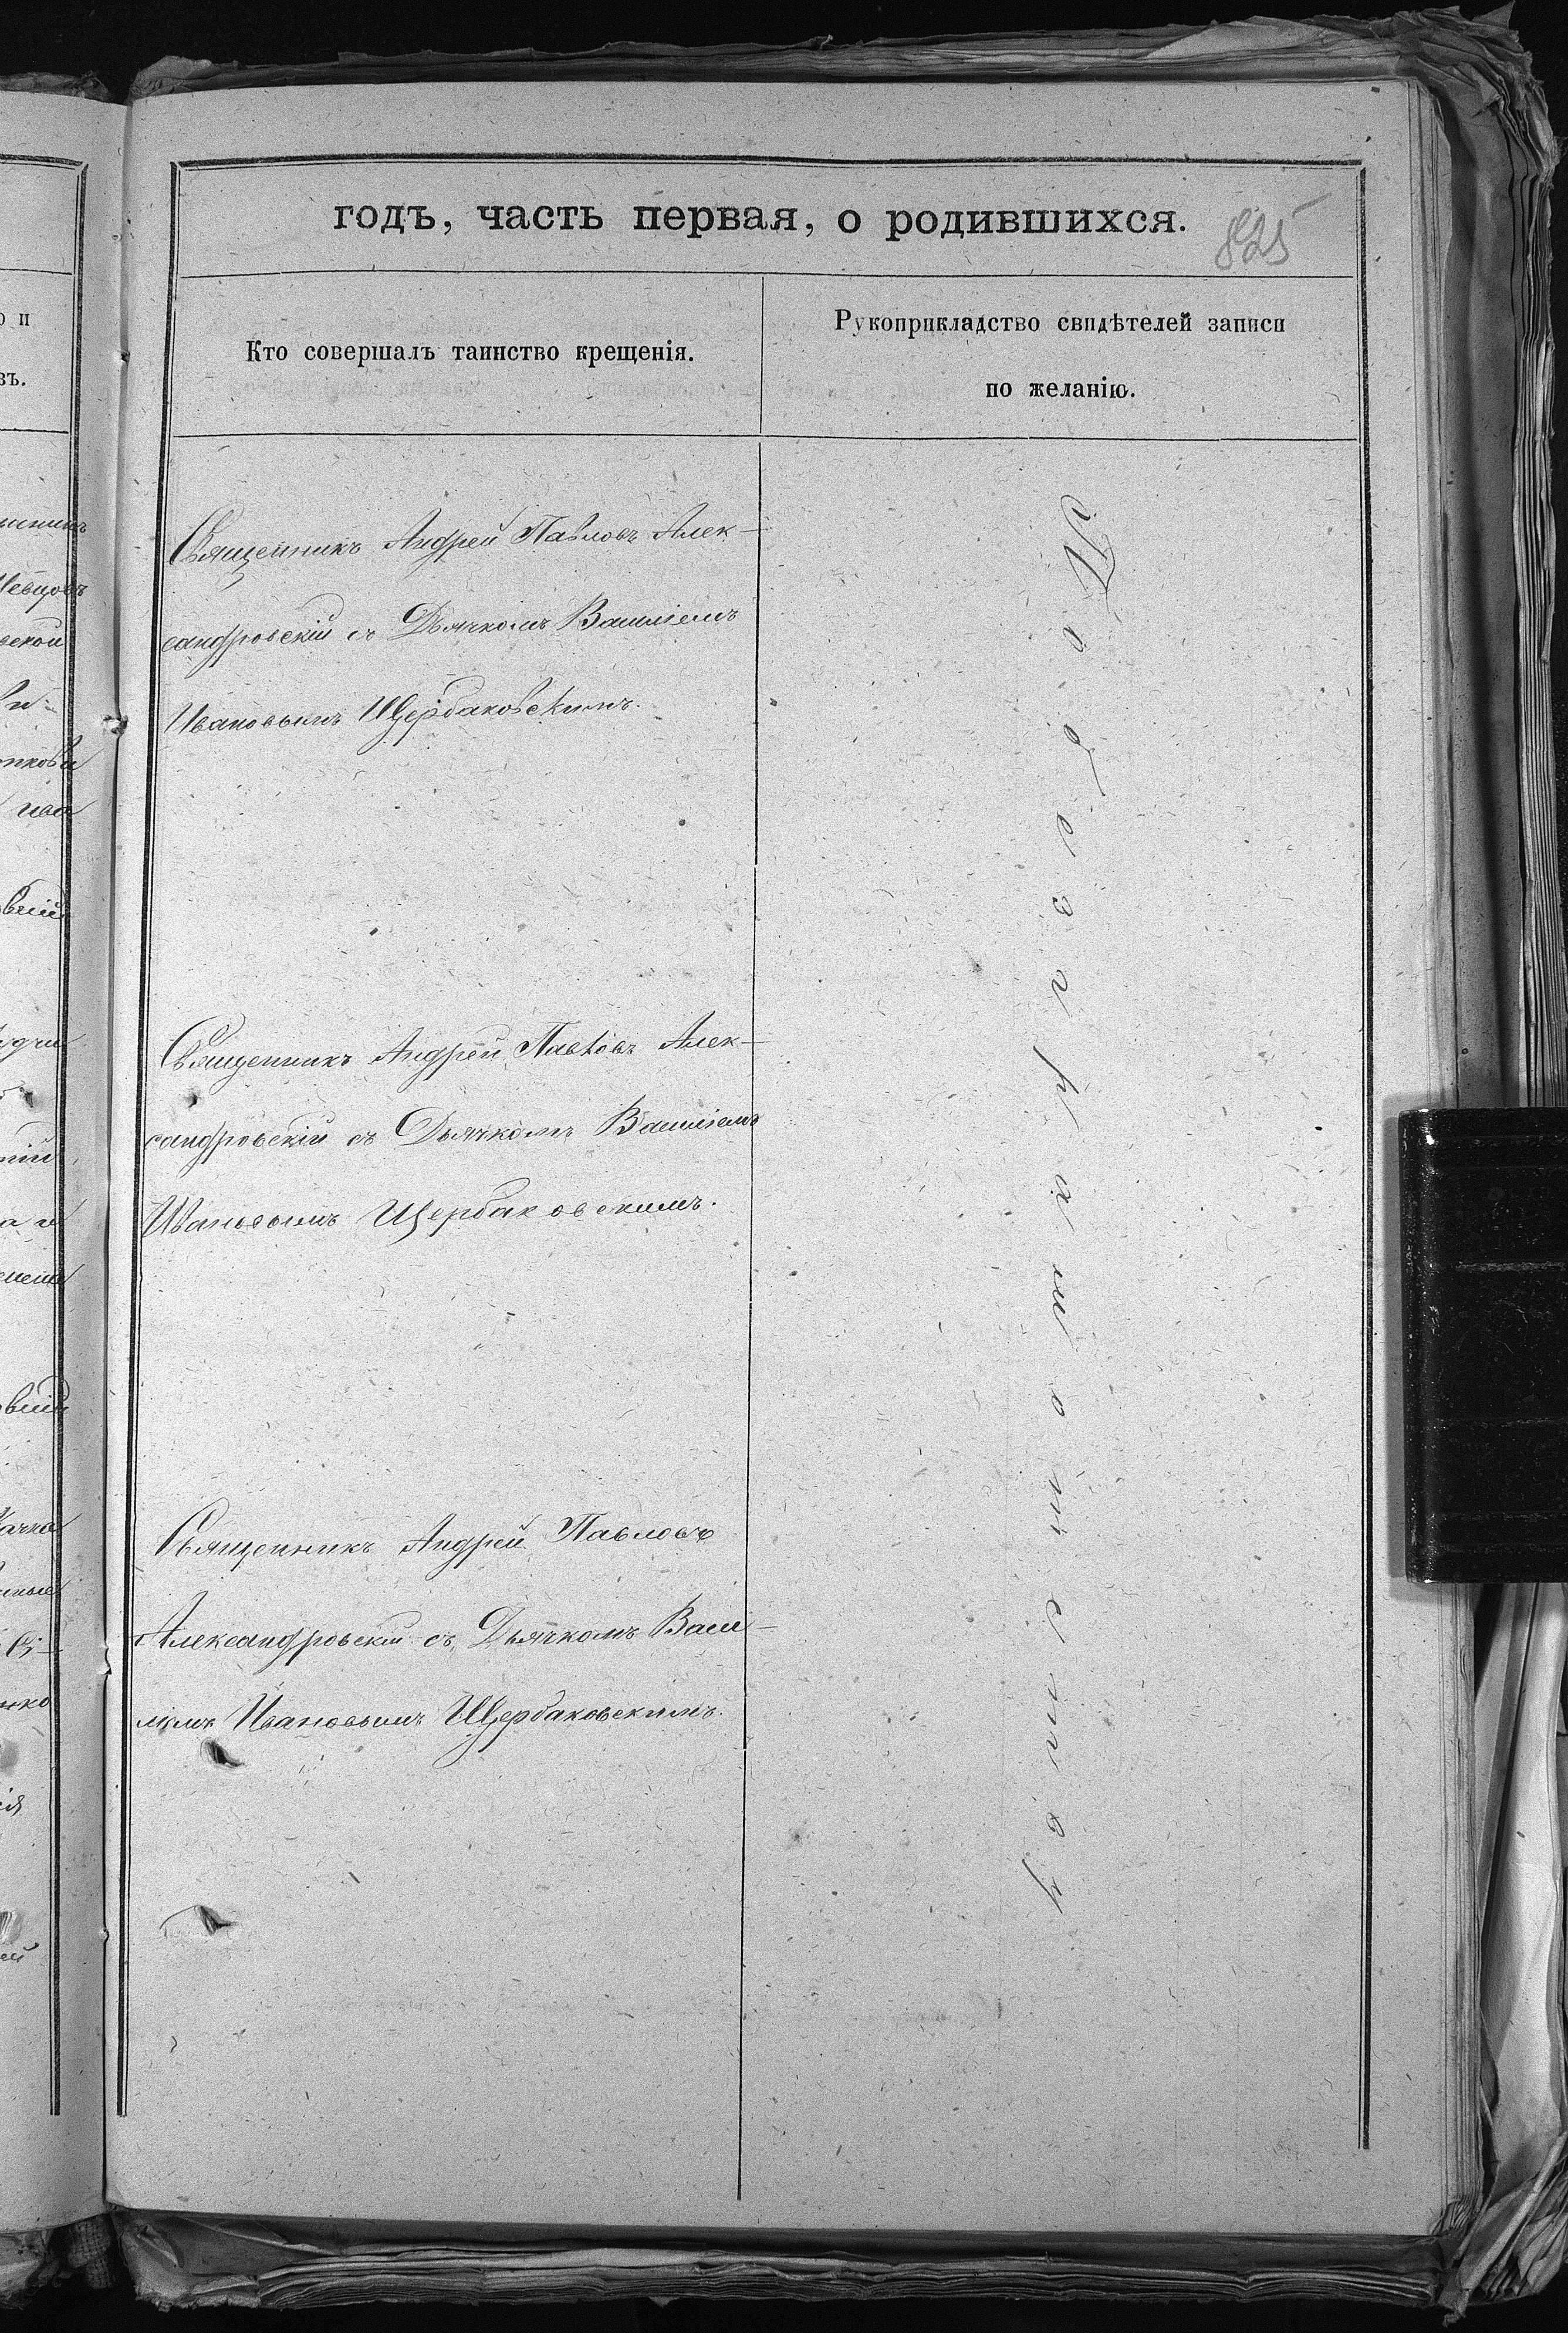 годъ, часть первая, о родившихся.
825
Кто совершалъ таинство крещенія.
Рукоприкладство свидѣтелей записи
по желанію.
Священникъ Андрей Павловъ Алек-
сандровскій съ Дьячкомъ Василіемъ
Ивановымъ Щербаковскимъ.
Священникъ Андрей Павловъ Алек-
сандровскій съ Дьячкомъ Василіемъ
Ивановымъ Щербаковскимъ.
Священникъ Андрей Павловъ
Александровскій съ Дьячкомъ Васи-
ліемъ Ивановымъ Щербаковскимъ.
По безграмотству